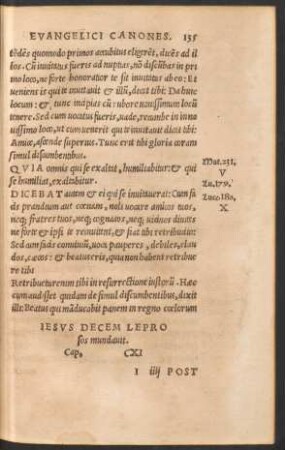 EVANGELICI CANONES. 135
tẽdẽs quomodo primos accubitus eligerẽt, dicẽs ad il
los. Cũ inuitatus fueris ad nuptas, nõ discũbas in pri
mo loco, ne forte honoratior te sit inuitatus ab eo: Et
veniens is qui te inuitauit & illũ, dicat tibi: Da huic
locum: & tunc incipias cũ rubore nouissimum locũ
tenere. Sed cum uocatus fueris, uade, recumbe in inno
uissimo loco, ut cum uenerit qui te inuitauit dicat tibi:
Amice, ascende superius. Tunc erit tibi gloria coram
simul discumbentibus.
QVIA omnis qui se exaltat, humiliabitur: & qui
se humiliat, exaltabitur.
Mat.231.
V
Lu.179.
DICEBAT autem & ei qui se inuitauerat: Cum facis
prandium aut cœnam, noli uocare amicos tuos,
neq; fratres tuos, neq; cognatos, neq; uicinos diuites
ne forte & ipsi te reinuitent, & fiat tibi retributio:
Luc.180.
X
Sed cum facis conuiuiũ, uoca pauperes, debiles, clau
dos, cæcos: & beatus eris, quia non habent retribue
re tibi
Retribuetur enim tibi in resurrectione iustorũ. Hæc
cum audisset quidam de simul discumbentibus, dixit
illi: Beatus qui mãducabit panem in regno cœlorum
IESVS DECEM LEPRO
sos mundauit.
Cap. CXI
I iiij POST